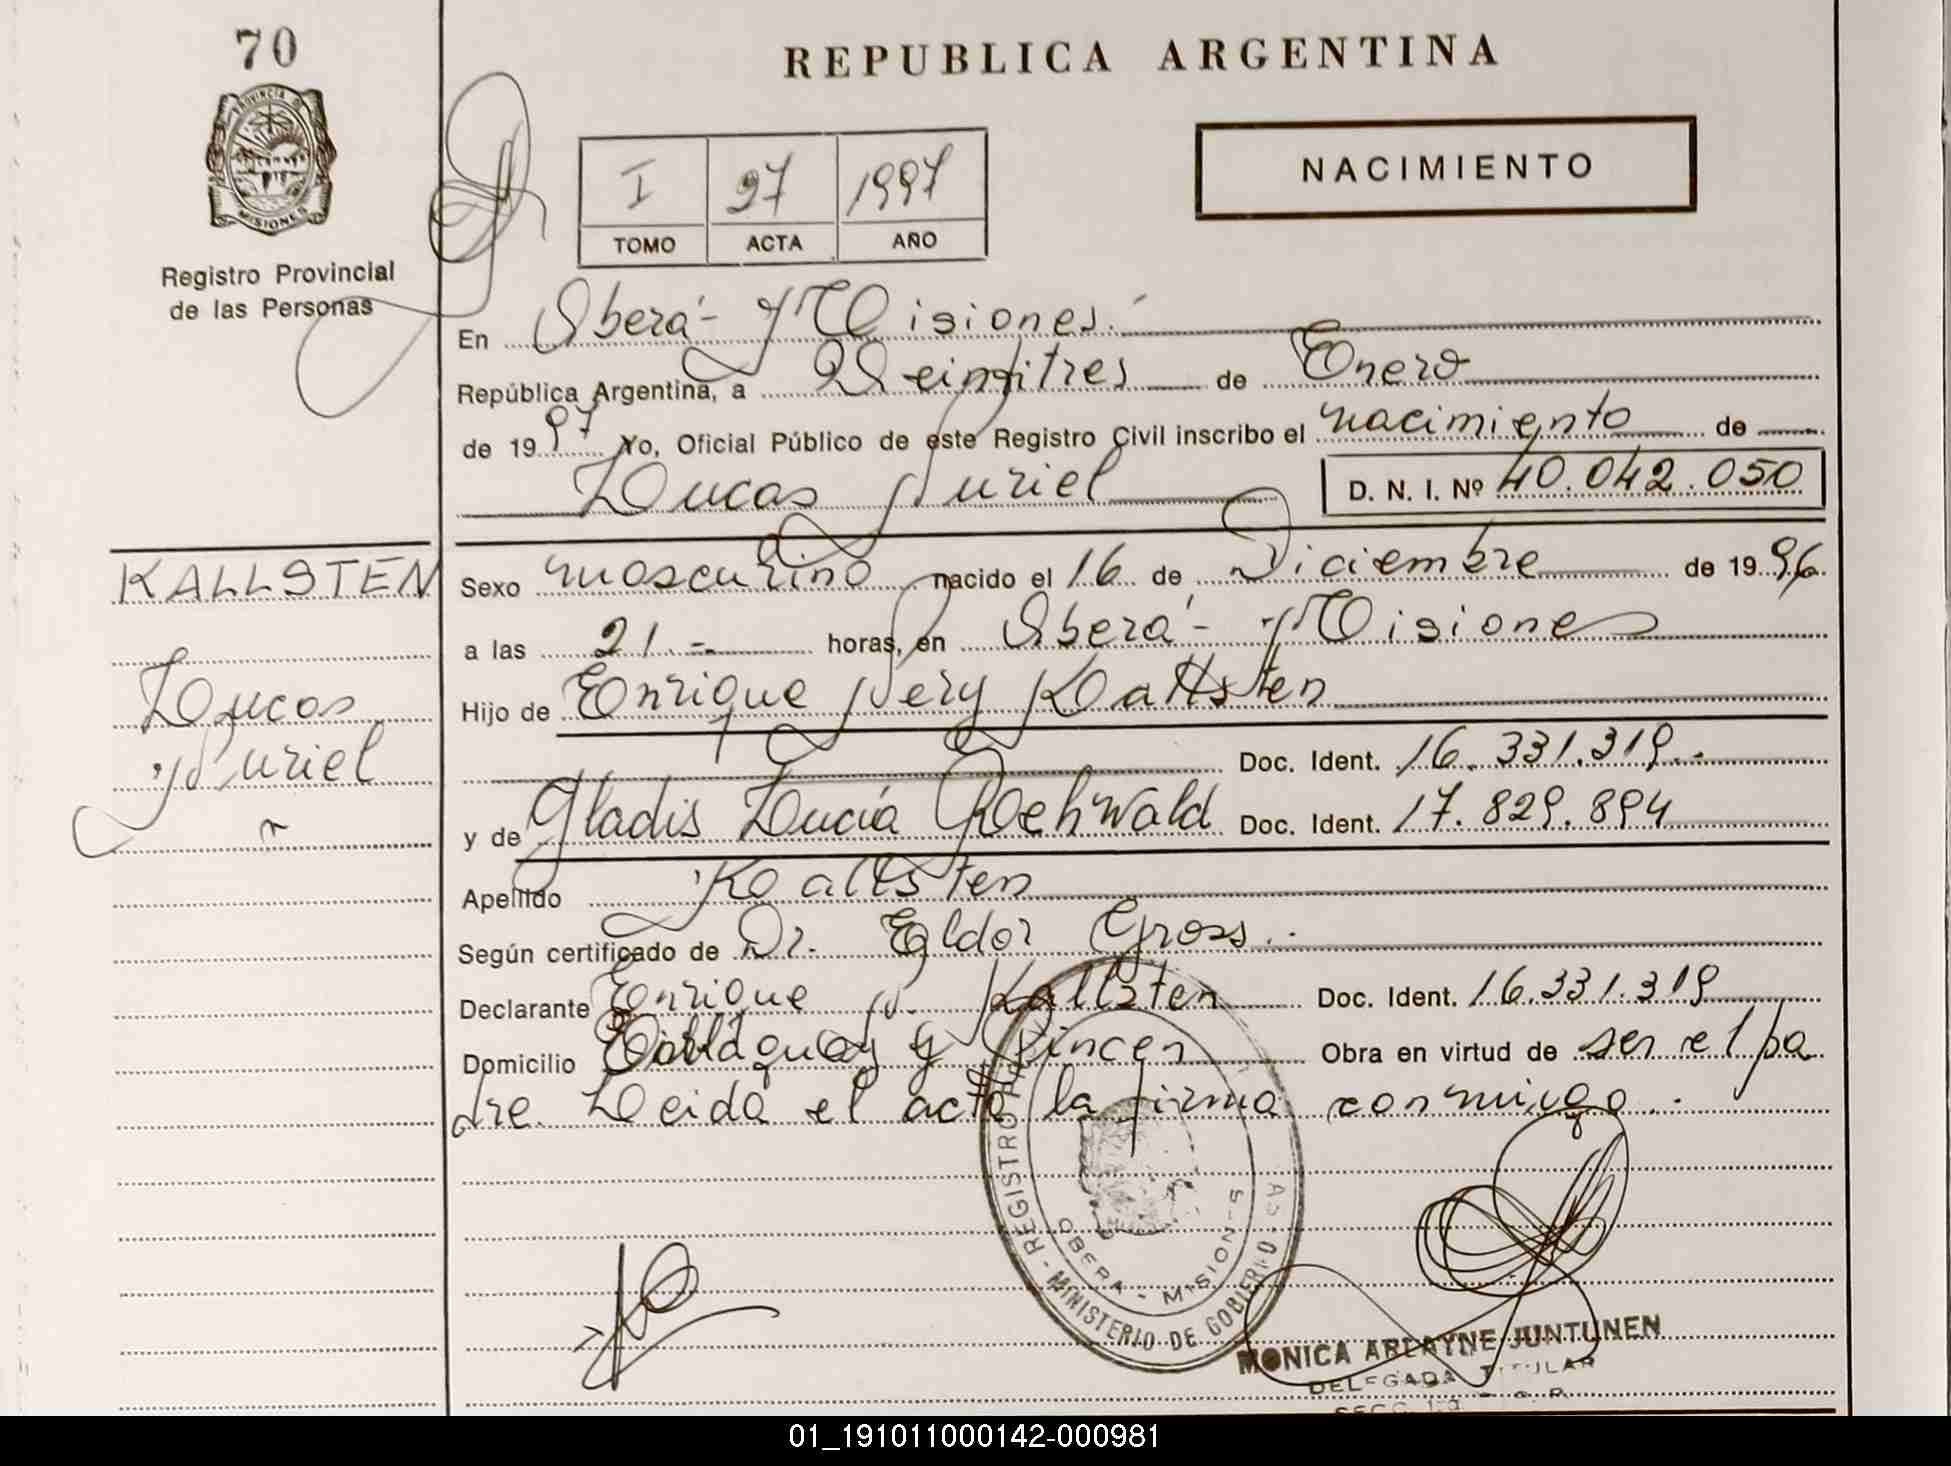 70
REPUBLICA ARGENTINA
PROVINCIA DE
MISIONES
Registro Provincial
de las Personas
I 97 1997
TOMO ACTA AÑO
NACIMIENTO
En Oberá - Misiones.
República Argentina, a Veintitres de Enero
de 1997 Yo, Oficial Público de este Registro Civil inscribo el nacimiento de
Lucas Nuriel D. N. I. Nº 40.042.050
KALLSTEN
Lucas
Nuriel
Sexo masculino nacido el 16 de Diciembre de 1996
a las 21.- horas, en Oberá - Misiones
Hijo de Enrique Nery Kallsten
Doc. Ident. 16.331.319.-
y de Gladis Lucía Rehwald Doc. Ident. 17.829.894
Apellido Kallsten
Según certificado de Dr. Eldor Gross.-
Declarante Enrique N. Kallsten Doc. Ident. 16.331.319
Domicilio y Pincen Obra en virtud de ser el pa
dre. Leida el acta la firma conmigo.-
REGISTRO
MINISTERIO DE GOBIERNO
OBERA - MISIONES
MONICA ARLAYNE JUNTUNEN
DELEGADA TITULAR
01_191011000142-000981